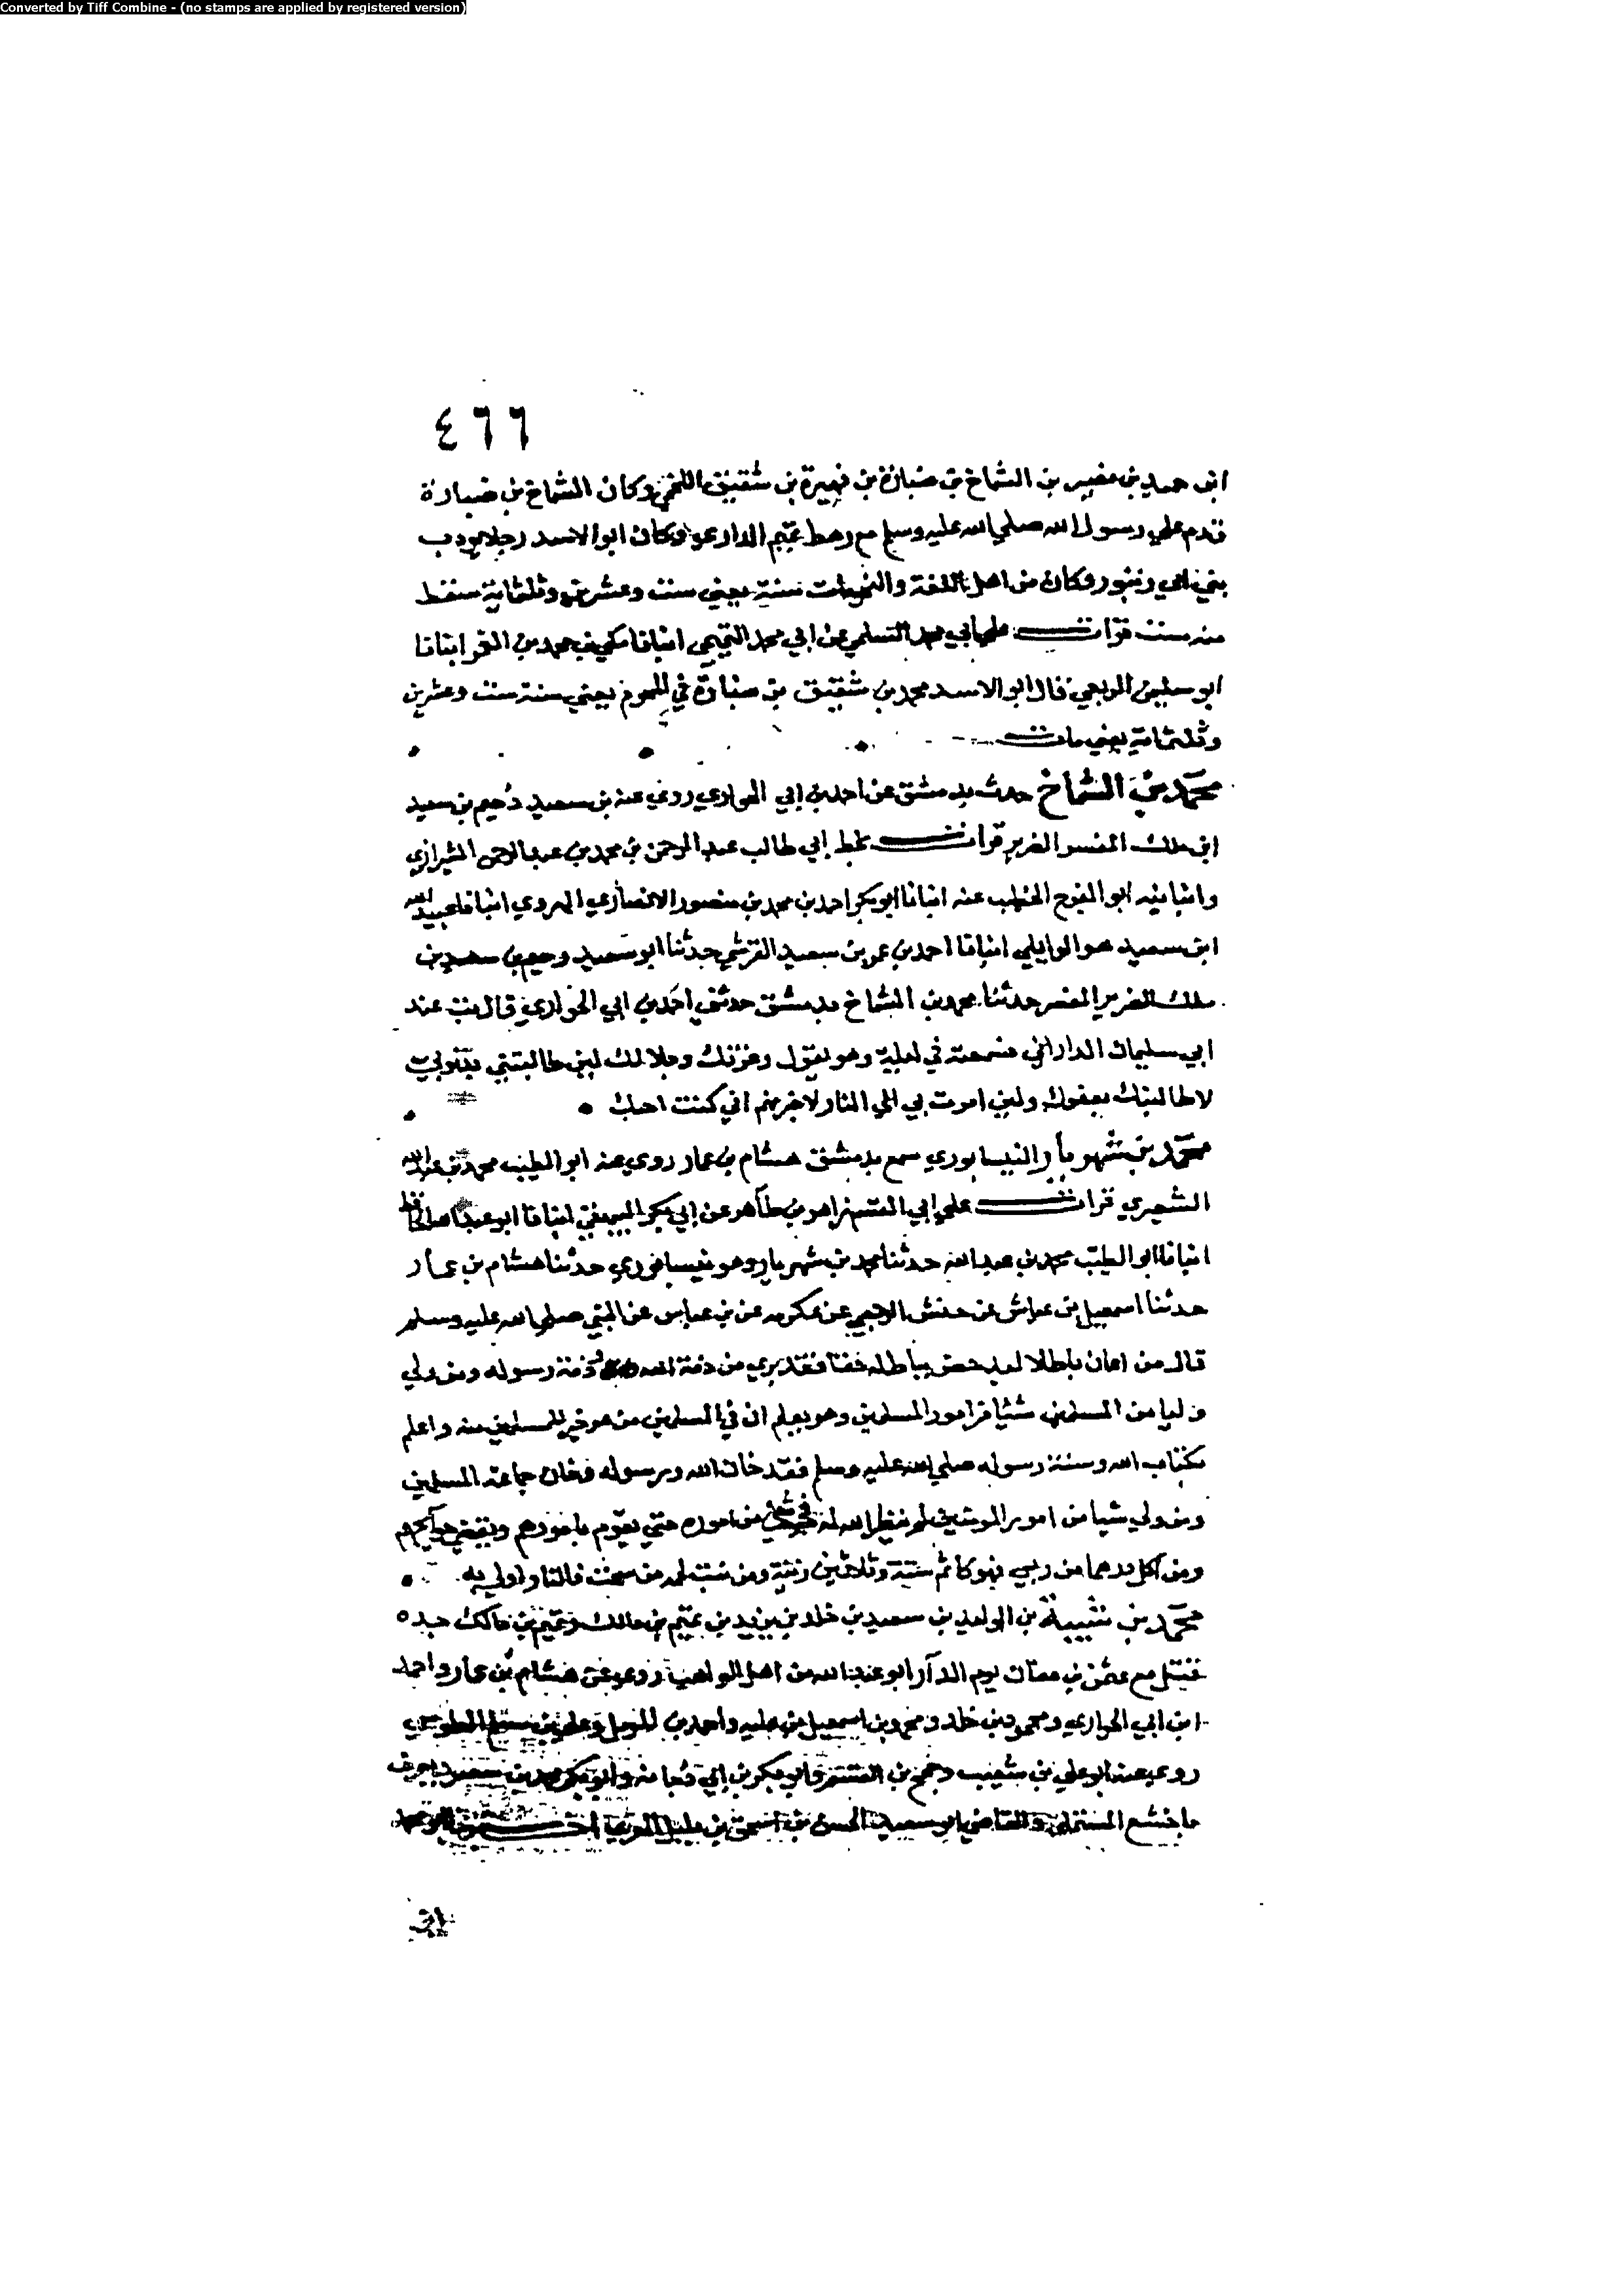 Converted by Tiff Combine - (no stamps are applied by registered version)
٤٦٦
ابن حميد بن مضير بن الشماخ بن ضبارة بن نهيرة بن شقيق اللخمي وكان الشماخ بن ضبارة
قدم علي رسول الله صلي الله عليه وسلم مع رهط تميم الداري وكان ابو الاسد رجلا يودب
بني ابي زنبور وكان من اهل اللغة والنحو مات سنة يعني ست وعشرين وثلثماية سقط
منه ست قرات علي ابي محمد السلمي عن ابي محمد التميمي انبانا مكي بن محمد بن الغمر انبانا
ابو سليمن الربعي قال ابو الاسد محمد بن شقيق بن ضبارة في المحرم يعني سنة ست وعشرين
وثلثماية يعني مات
محمد بن الشماخ حدث بدمشق عن احمد بن ابي الحواري روي عنه بن سعيد دحيم بن سعيد
ابن ملك المفسر الضرير قرات بخط ابي طالب عبد الرحمن بن محمد بن عبد الرحمن الشيرازي
وانبانيه ابو الفرج الخطيب عنه انبانا ابو بكر احمد بن محمد بن منصور الانصاري الهروي انبانا عبيد الله
ابن سعيد هو الوايلي انبانا احمد بن عمر بن سعيد القرشي حدثنا ابو سعيد دحيم بن سعيد بن
ملك الضرير المفسر حدثنا محمد بن الشماخ بدمشق حدثني احمد بن ابي الحواري قال بت عند
ابي سليمان الداراني فسمعته في ليلته وهو يقول وعزتك وجلالك لين طالبتني بذنوبي
لاطالبنك بعفوك ولين امرت بي الي النار لاخبرنهم اني كنت احبك
محمد بن شهريار النيسابوري سمع بدمشق هشام بن عمار روي عنه ابو الطيب محمد بن عبد الله
الشعيري قرات علي ابي القسم زاهر بن طاهر عن ابي بكر البيهقي انبانا ابو عبد الله الحافظ
انبانا ابو الطيب محمد بن عبد الله حدثنا محمد بن شهريار وهو نيسابوري حدثنا هشام بن عمار
حدثنا اسمعيل بن عياش عن حنش الرحبي عن عكرمه عن بن عباس عن النبي صلي الله عليه وسلم
قال من اعان باطلا ليدحض بباطله حقا فقد بري من ذمة الله وذمة رسوله ومن ولي
وليا من المسلمين شيا من امور المسلمين وهو يعلم ان في المسلمين من هو خير للمسلمين منه واعلم
بكتاب الله وسنة رسوله صلي الله عليه وسلم فقد خان الله ورسوله وخان جماعة المسلمين
ومن ولي شيا من امور المسلمين لم ينظر الله له في شي من اموره حتي يقوم بامورهم ويقضي حوايجهم
ومن اكل درهما من ربي فهو كاثم ستة وثلاثين زنية ومن نبت لحمه من سحت فالنار اولي به
محمد بن شيبة بن الوليد بن سعيد بن خلد بن يزيد بن تميم بن مالك وتميم بن مالك جده
قتل مع عثمن بن عفان يوم الدار ابو عبد الله من اهل الراهب روي عن هشام بن عمار واحمد
ابن ابي الحواري ومحمود بن خلد ومحمد بن اسمعيل بن عليه واحمد بن المومل وعلي بن مسلم الطوسي
روي عنه ابو علي بن شعيب وجمح بن القسم وابو بكر بن ابي دجانة وابو بكر محمد بن سعيد ويعرف
المستملي والقاضي ابو سعيد الحسن بن اسحق بن بلبل